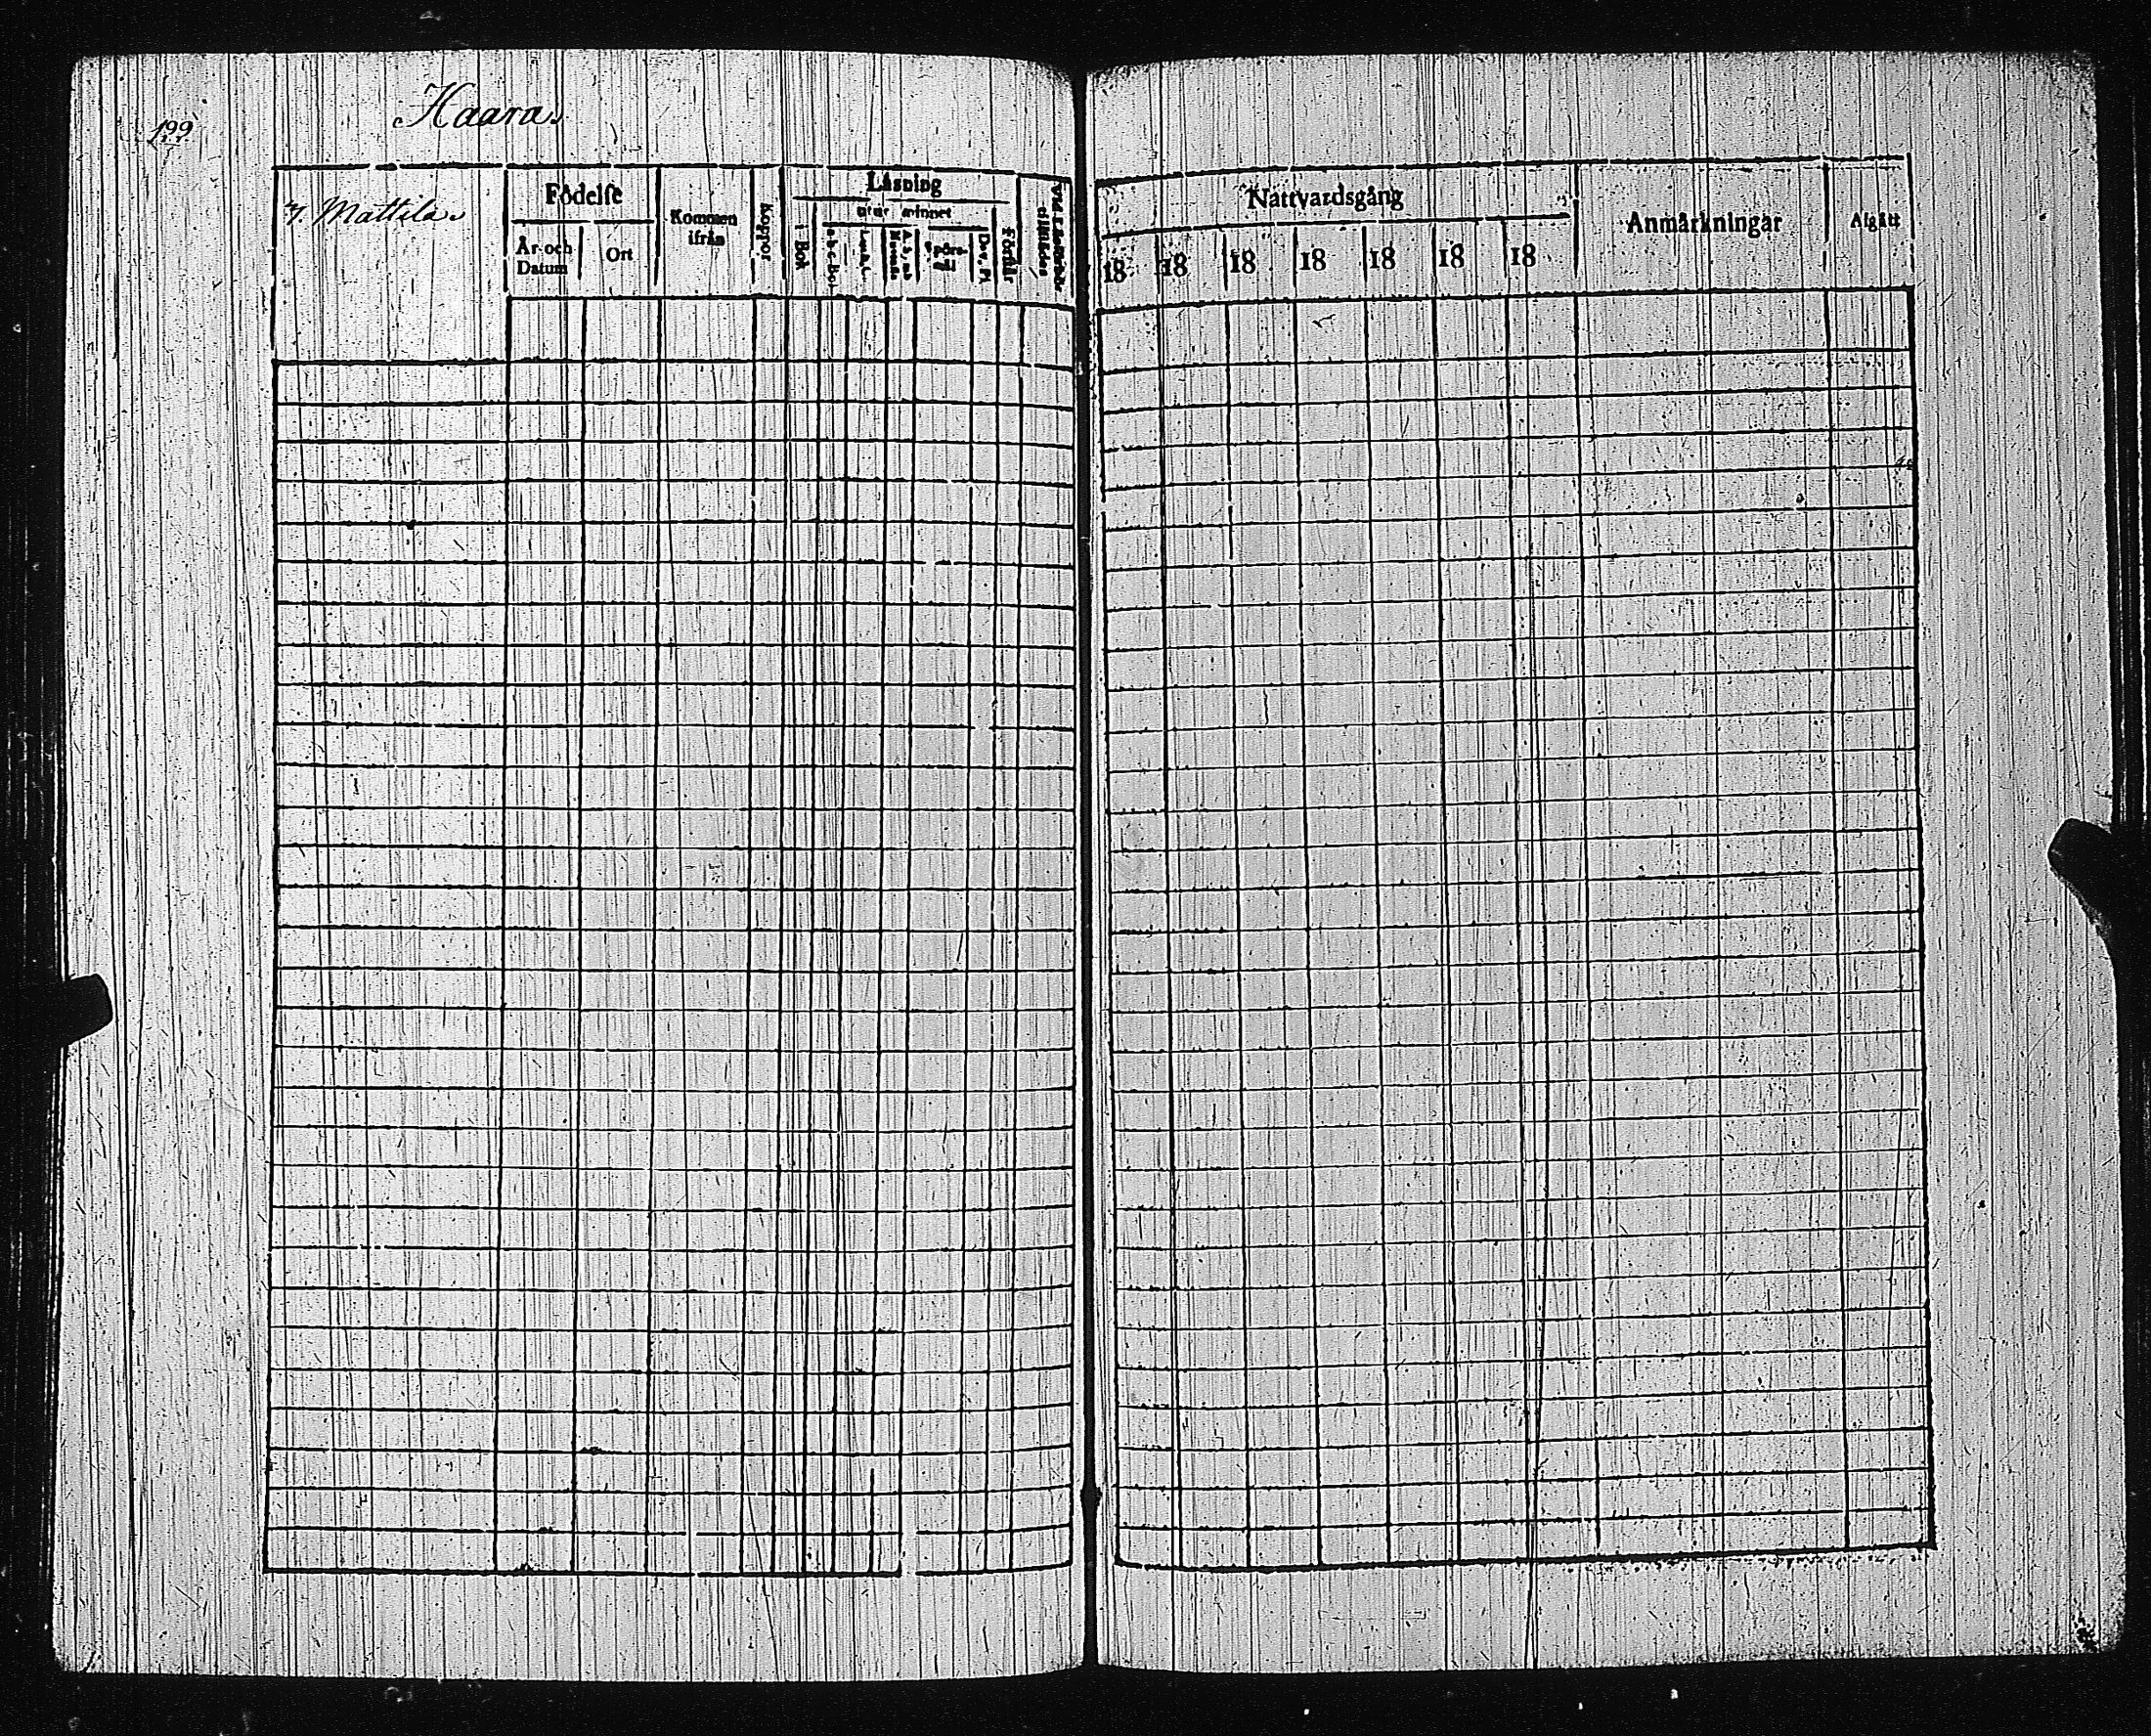 199
Haara
7. Mattila
Födelse
År och Datum
Ort
Kommen ifrån
Koppor
Läsning
i Bok
utur minnet
a-b-c-Bok
Luth. C.
Spörs-
Dav. Ps.
Förhör
Nattvardsgång
18 18 18 18 18 18 18
Anmärkningar
Afgått